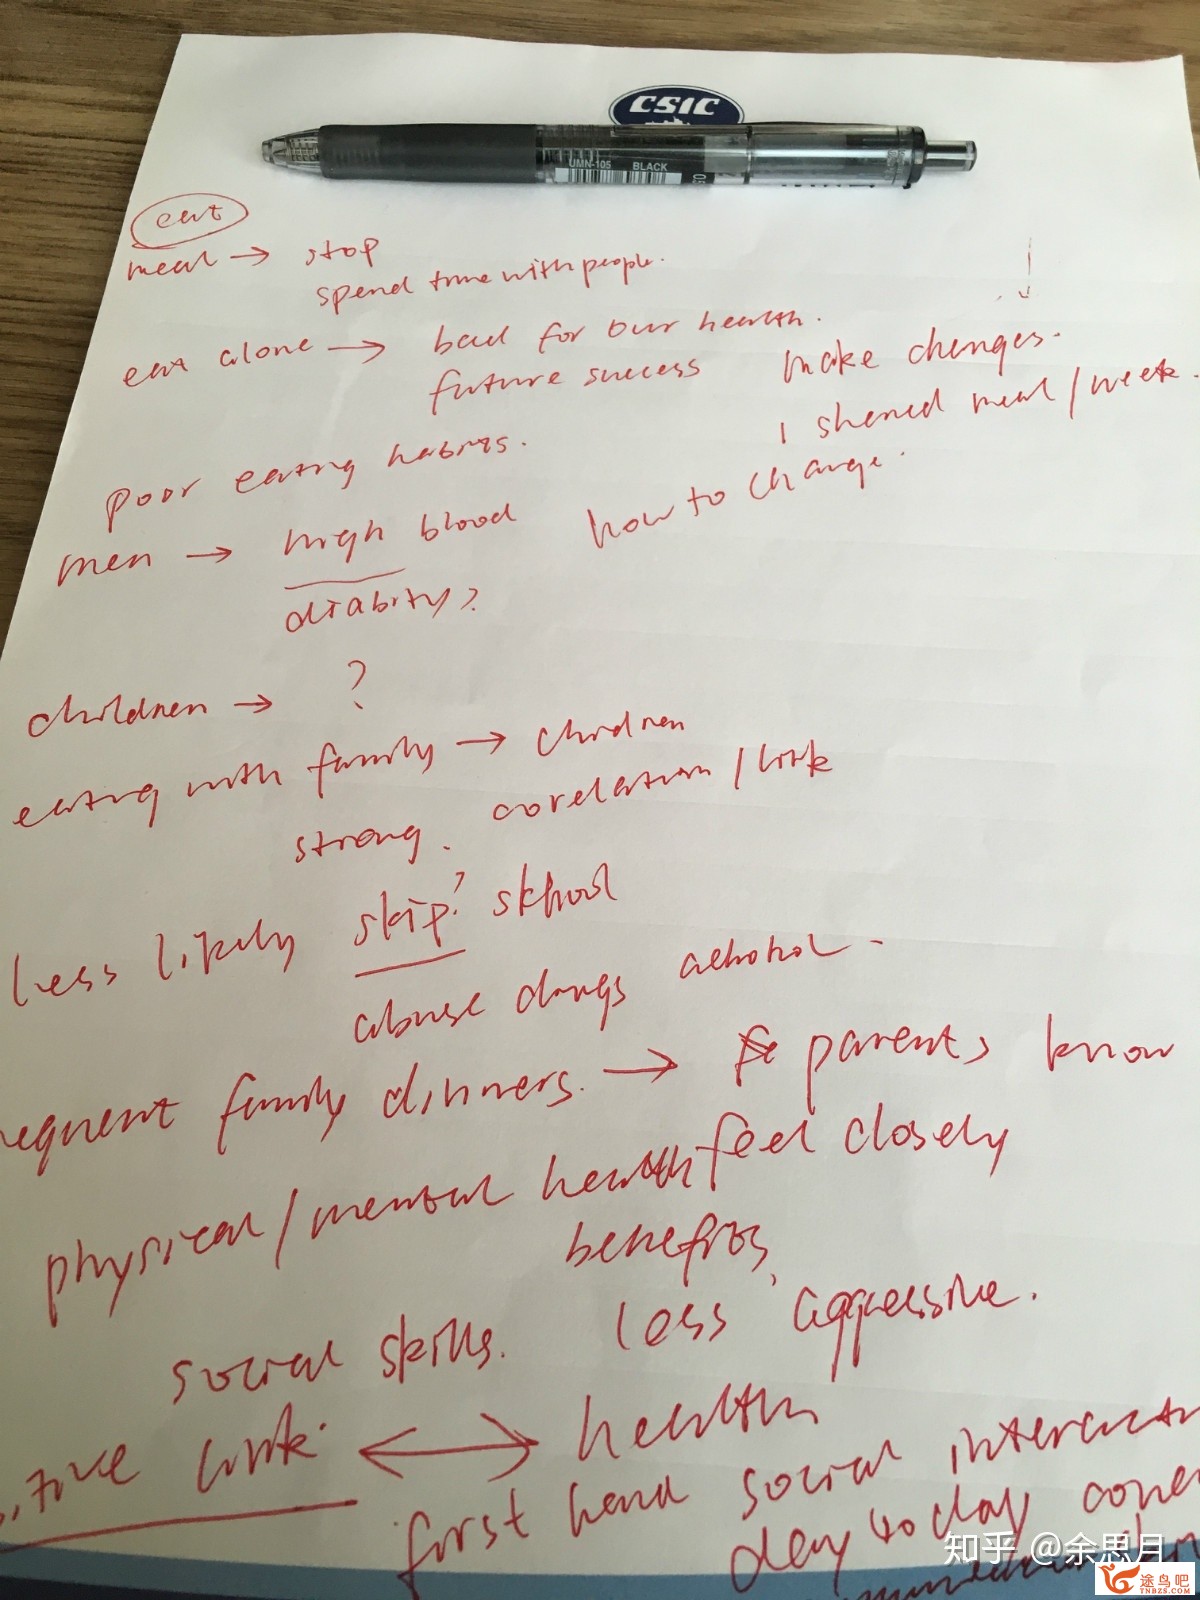 CSIC
UMN-105 BLACK 0.5
eat
meal → stop
spend time with people.
eat alone → bad for our health.
future success
make changes.
1 shared meal/week.
how to change.
poor eating habits.
men → high blood
diabity?
children → ?
eating with family → children
strong. corelation/link
less likely skip? skhool
abuse drugs alcohol.
requent family dinners. → parents know
physical/mental health feel closely
benefits,
social skills. less aggressive.
itive link. ↔ health
first hand social interact
day to day
知乎 @余思月
途鸟吧
TNBZS.COM